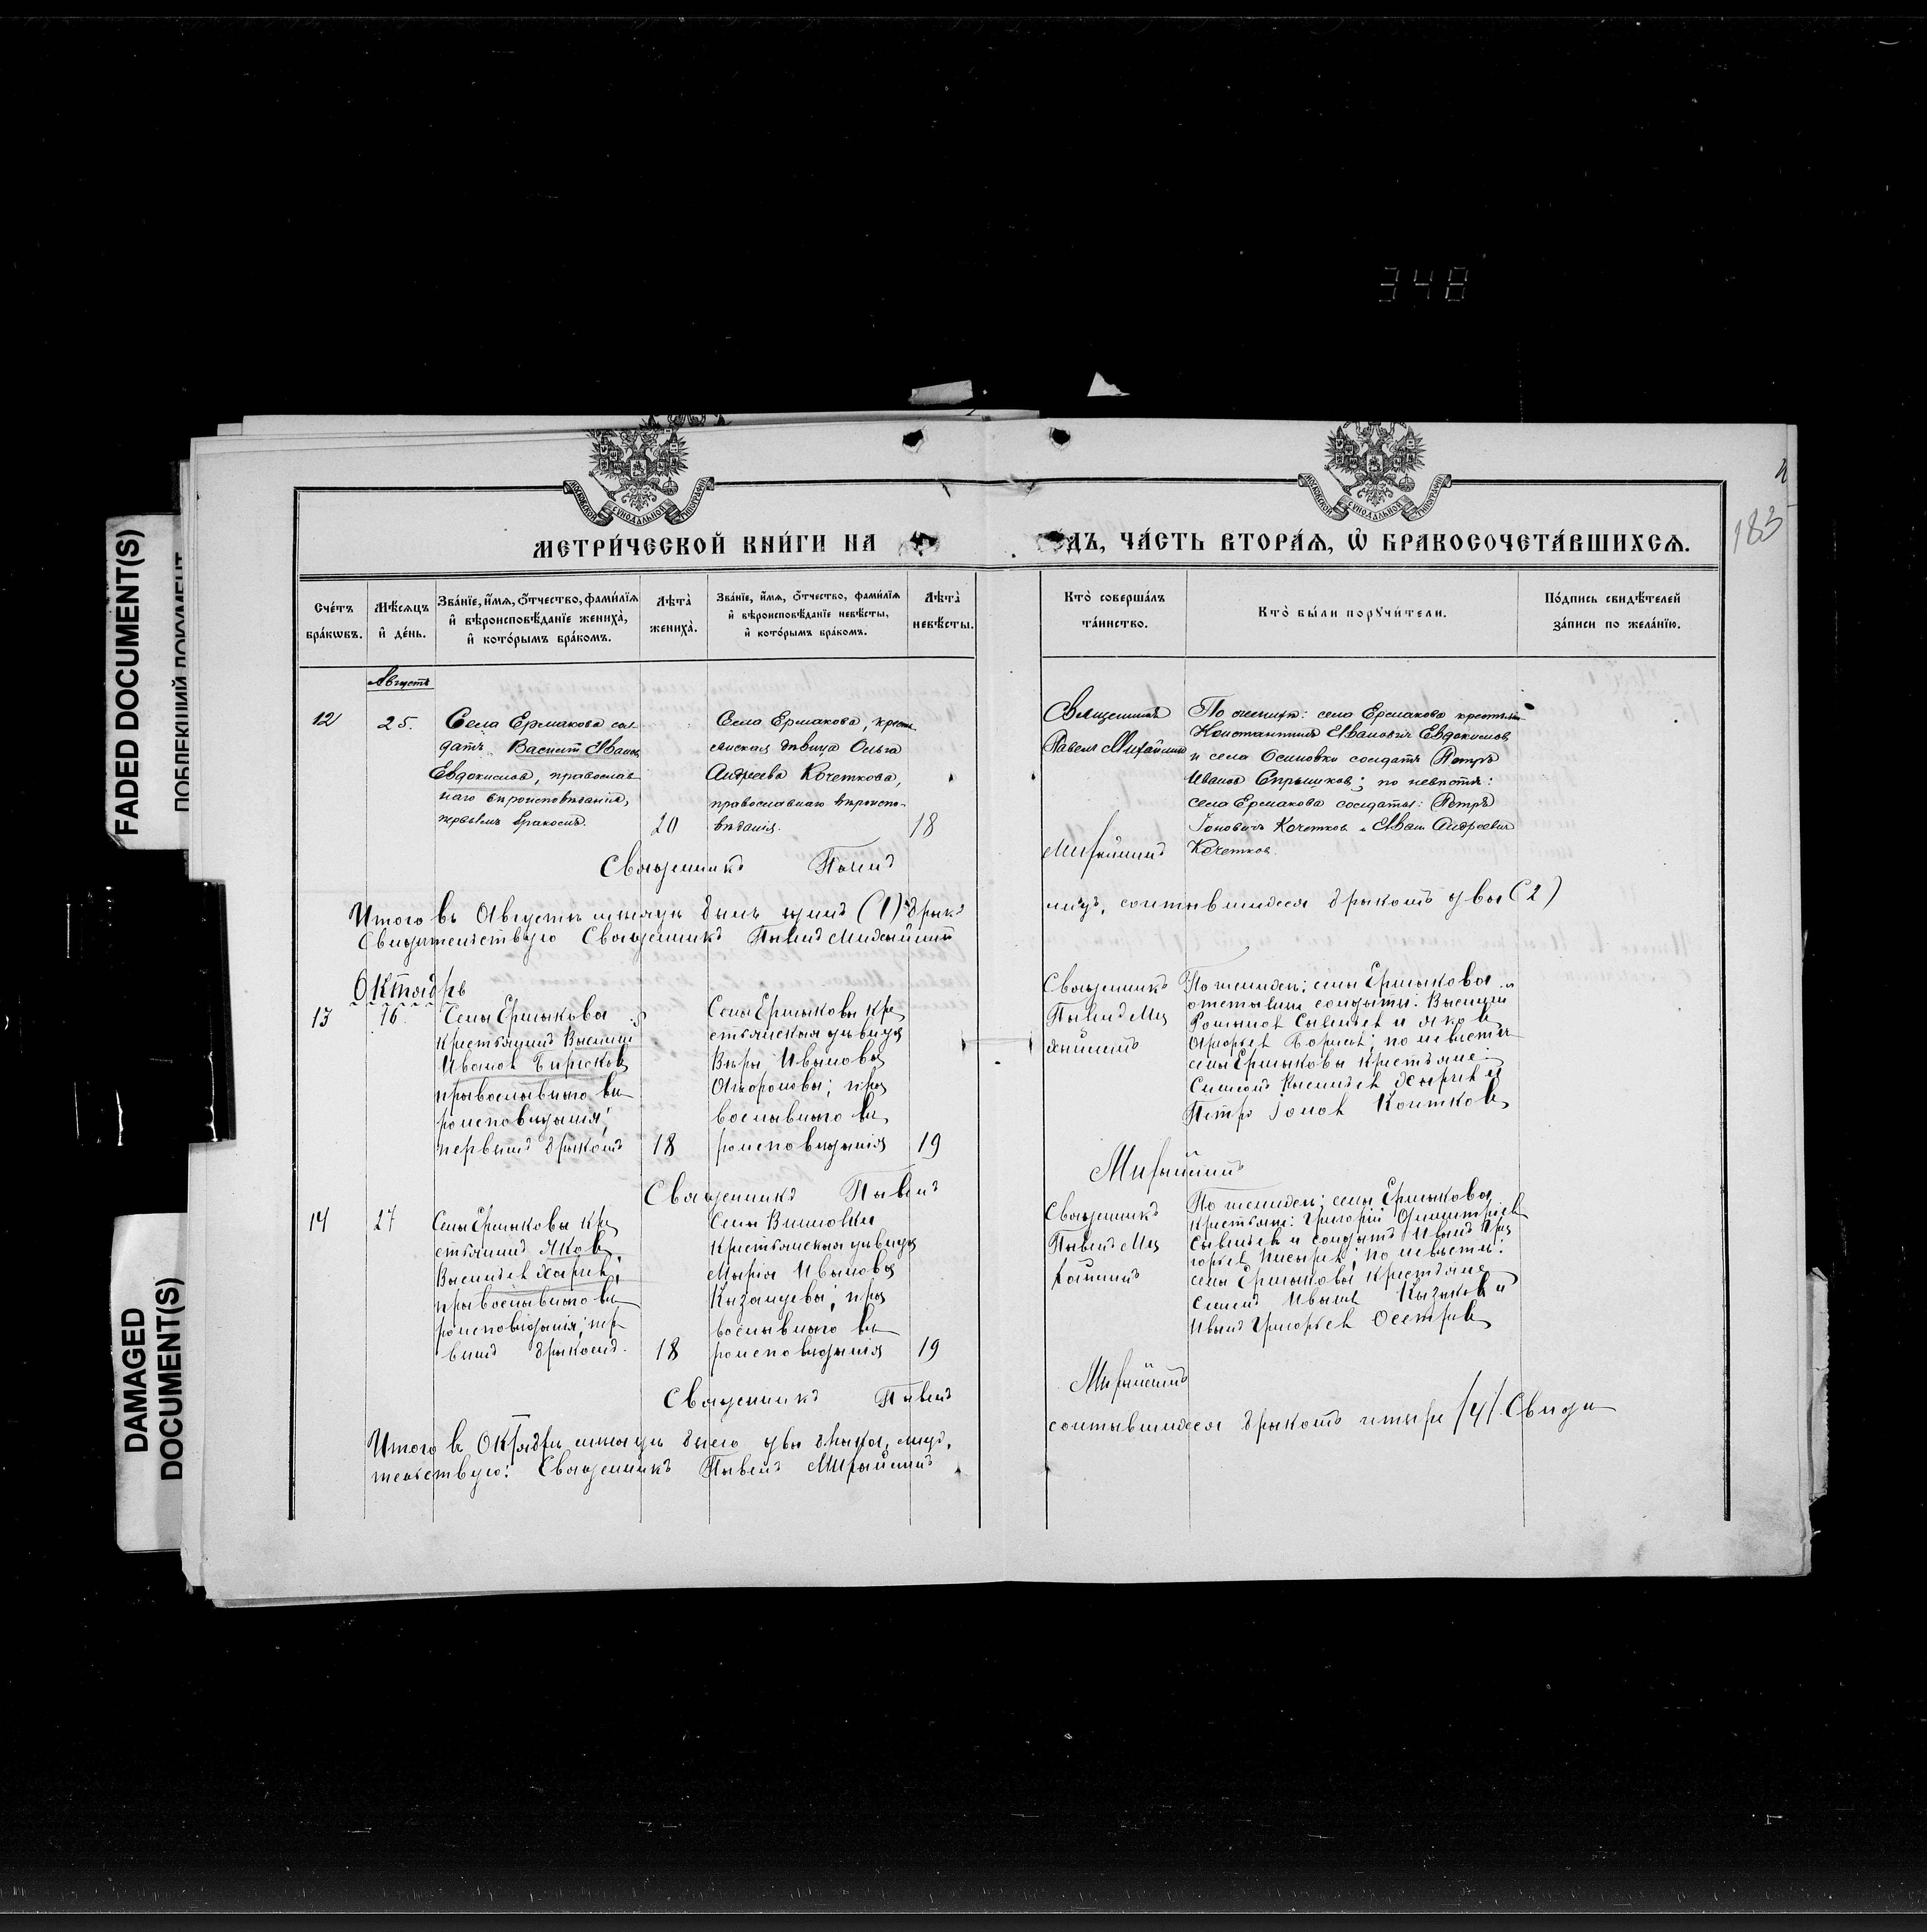 348
FADED DOCUMENT(S)
DAMAGED
DOCUMENT(S)
183
МЕТРИ́ЧЕСКОЙ КНИ́ГИ НА
ДЪ, ЧА́СТЬ ВТОРА́Я, Ѡ҆ БРАКОСОЧЕТА́ВШИХСЯ.
Сче́тъ бра́кѡвъ.
Мѣ́сяцъ и҆ де́нь.
Зва́нїе, и҆́мя, ѻ҆́тчество, фами́лїя
и҆ вѣроисповѣ́данїе жениха̀,
и҆ кото́рымъ бра́комъ.
Лѣта̀ жениха̀.
Зва́нїе, и҆́мя, ѻ҆́тчество, фами́лїя
и҆ вѣроисповѣ́данїе невѣ́сты,
и҆ кото́рымъ бра́комъ.
Лѣта̀ невѣ́сты.
Кто̀ соверша́лъ
та́инство.
Кто̀ бы́ли порꙋчи́тели.
По́дпись свидѣ́телей
за́писи по жела́нїю.
Августъ
12
25.
Села Ермакова сол
датъ Василий Иванов
Евдокимов, православ
наго вѣроисповѣданія,
первымъ бракомъ.
20
Села Ермакова, кресть
янская дѣвица Ольга
Андреева Кочеткова,
православнаго вѣроиспо-
вѣданія.
18
Священникъ
Павел Михайлин
По женихѣ: села Ермакова крестьянин
Константинъ Ивановичъ Евдокимов
и села Осиновки солдатъ Петръ
Иванов Спрышков; по невѣстѣ:
села Ермакова солдаты: Петръ
Іоновичъ Кочетков и Иван Андреевич
Кочетков.
Священникъ Павелъ
Михайлинъ
Итого въ Августѣ мѣсяцѣ былъ одинъ (1) бракъ
лицъ, сочетавшихся бракомъ два (2)
Свидетельствую Священникъ Павелъ Михайлинъ
Октябрь
13
16
Села Ермакова
крестьянинъ Василий
Иванов Бирюков
православнаго вѣ
роисповѣданія;
первымъ бракомъ
18
Села Ермакова кре
стьянская дѣвица
Вѣра Иванова
православнаго вѣ
роисповѣданія
19
Священникъ
Павелъ Ми
хайлинъ
По женихѣ; села Ермакова
отставныя солдаты: Василий
Романов Савельев и Яков
по невѣстѣ
села Ермакова крестьяне:
Семенъ Васильев Харчев и
Петръ Іонов Кочетков
Священникъ Павелъ
Михайлинъ
14
27
Села Ермакова кре
стьянинъ Яков
Васильев Харчев,
православнаго вѣ
роисповѣданія; пер
вымъ бракомъ.
18
Села Вишновки
крестьянская дѣвица
Марія Иванова
Казанцева; пра
вославнаго вѣ
роисповѣданія
19
Священникъ
Павелъ Ми
хайлинъ
По женихѣ; села Ермакова
крестьяне: Григорій Димитріев
Савельев и солдатъ Иванъ Гри
горьев Писарев; по невѣстѣ:
села Ермакова крестьяне
Семенъ Иванов Казаков и
Иванъ Григорьев Осетров
Священникъ Павелъ
Михайлинъ
Итого въ Октябрѣ мѣсяцѣ было два брака, лицъ,
сочетавшихся бракомъ четыре /4/. Свидѣ
тельствую: Священникъ Павелъ Михайлинъ